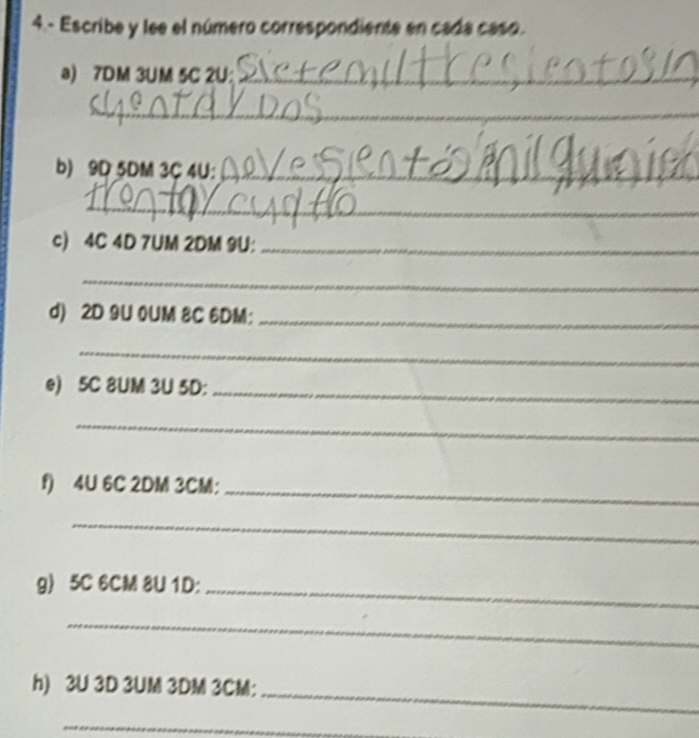 4.- Escribe y lee el número correspondiente en cada caso.
a) 7DM 3UM 5C 2U: Sietemiltresientosin
cuentaydos
b) 9D 5DM 3C 4U: novesientos mil
trentaycuatro
c) 4C 4D 7UM 2DM 9U:
d) 2D 9U 0UM 8C 6DM:
e) 5C 8UM 3U 5D:
f) 4U 6C 2DM 3CM:
g) 5C 6CM 8U 1D:
h) 3U 3D 3UM 3DM 3CM: